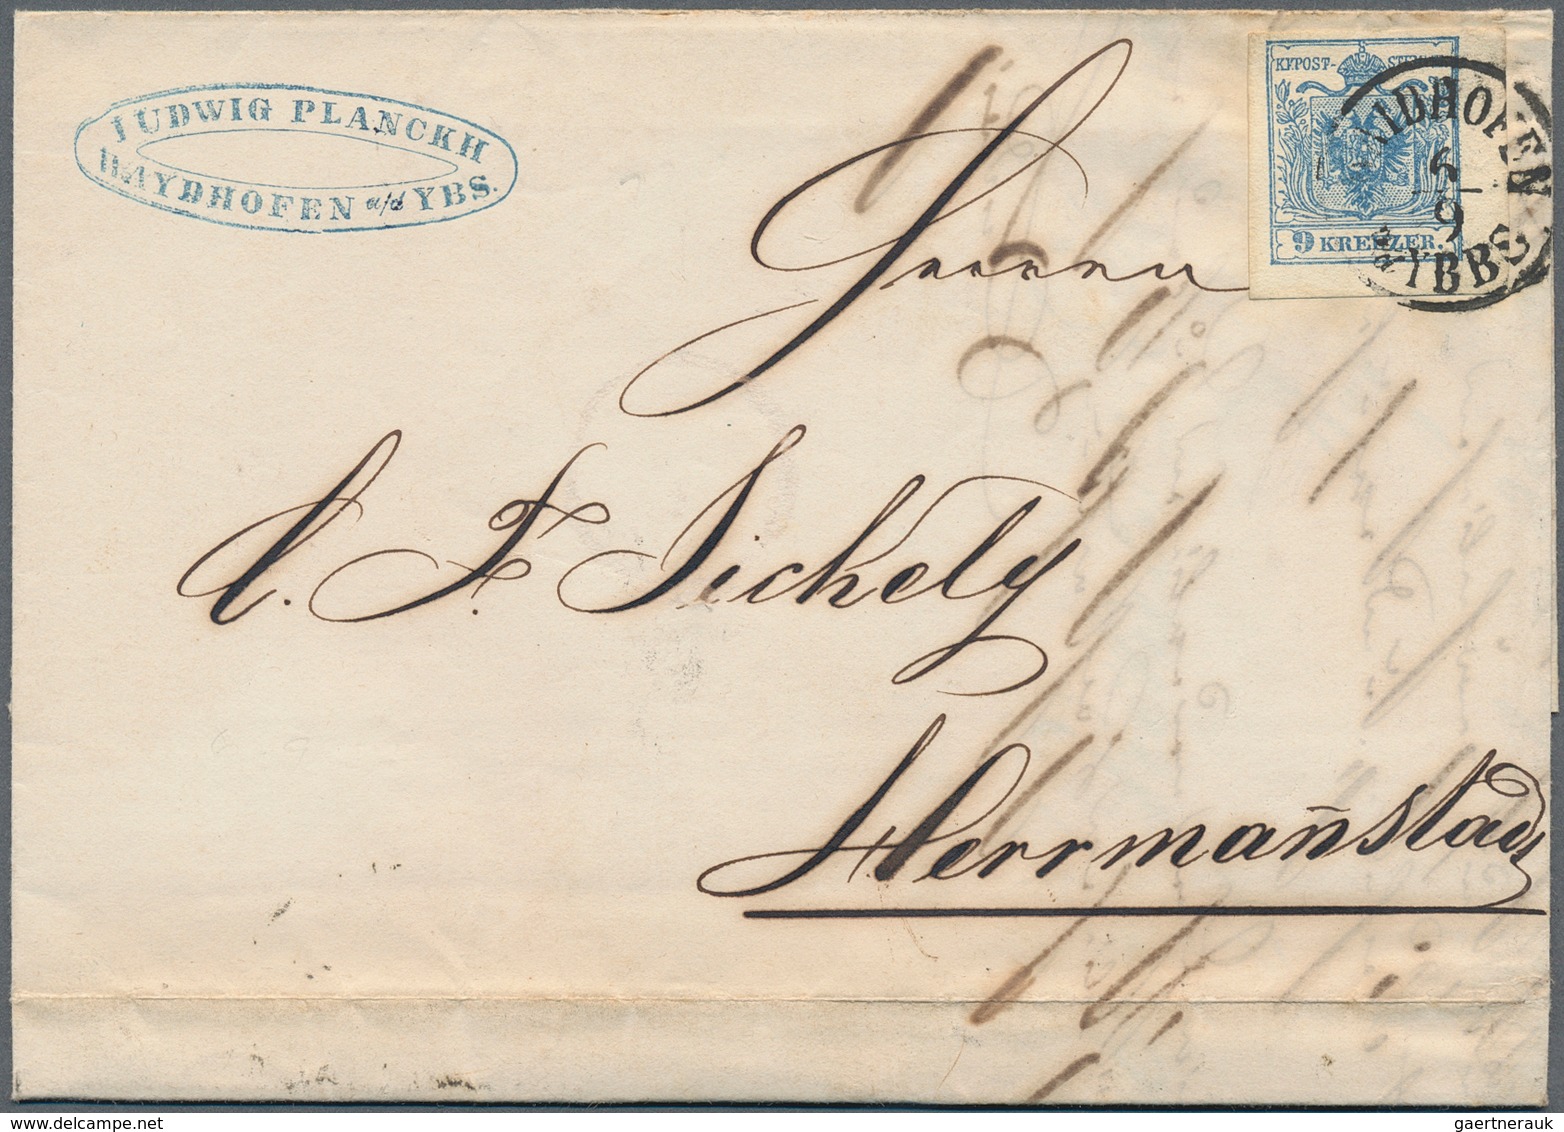 LUDWIG PLANCKH
WAYDHOFEN a/d YBS.
KK POST-STEMPEL
9 KREUZER.
WAIDHOFEN
6
9
YBBS
Herrn
C. F. Jickely
Hermañstadt
gaertnerauk